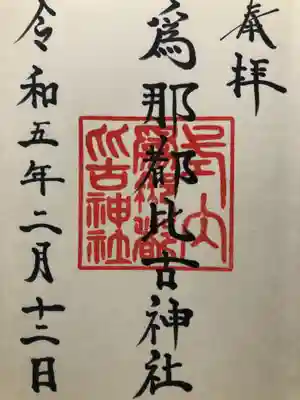 奉拝
爲那都比古神社
式内
爲那都
比古神社
令和五年二月十二日